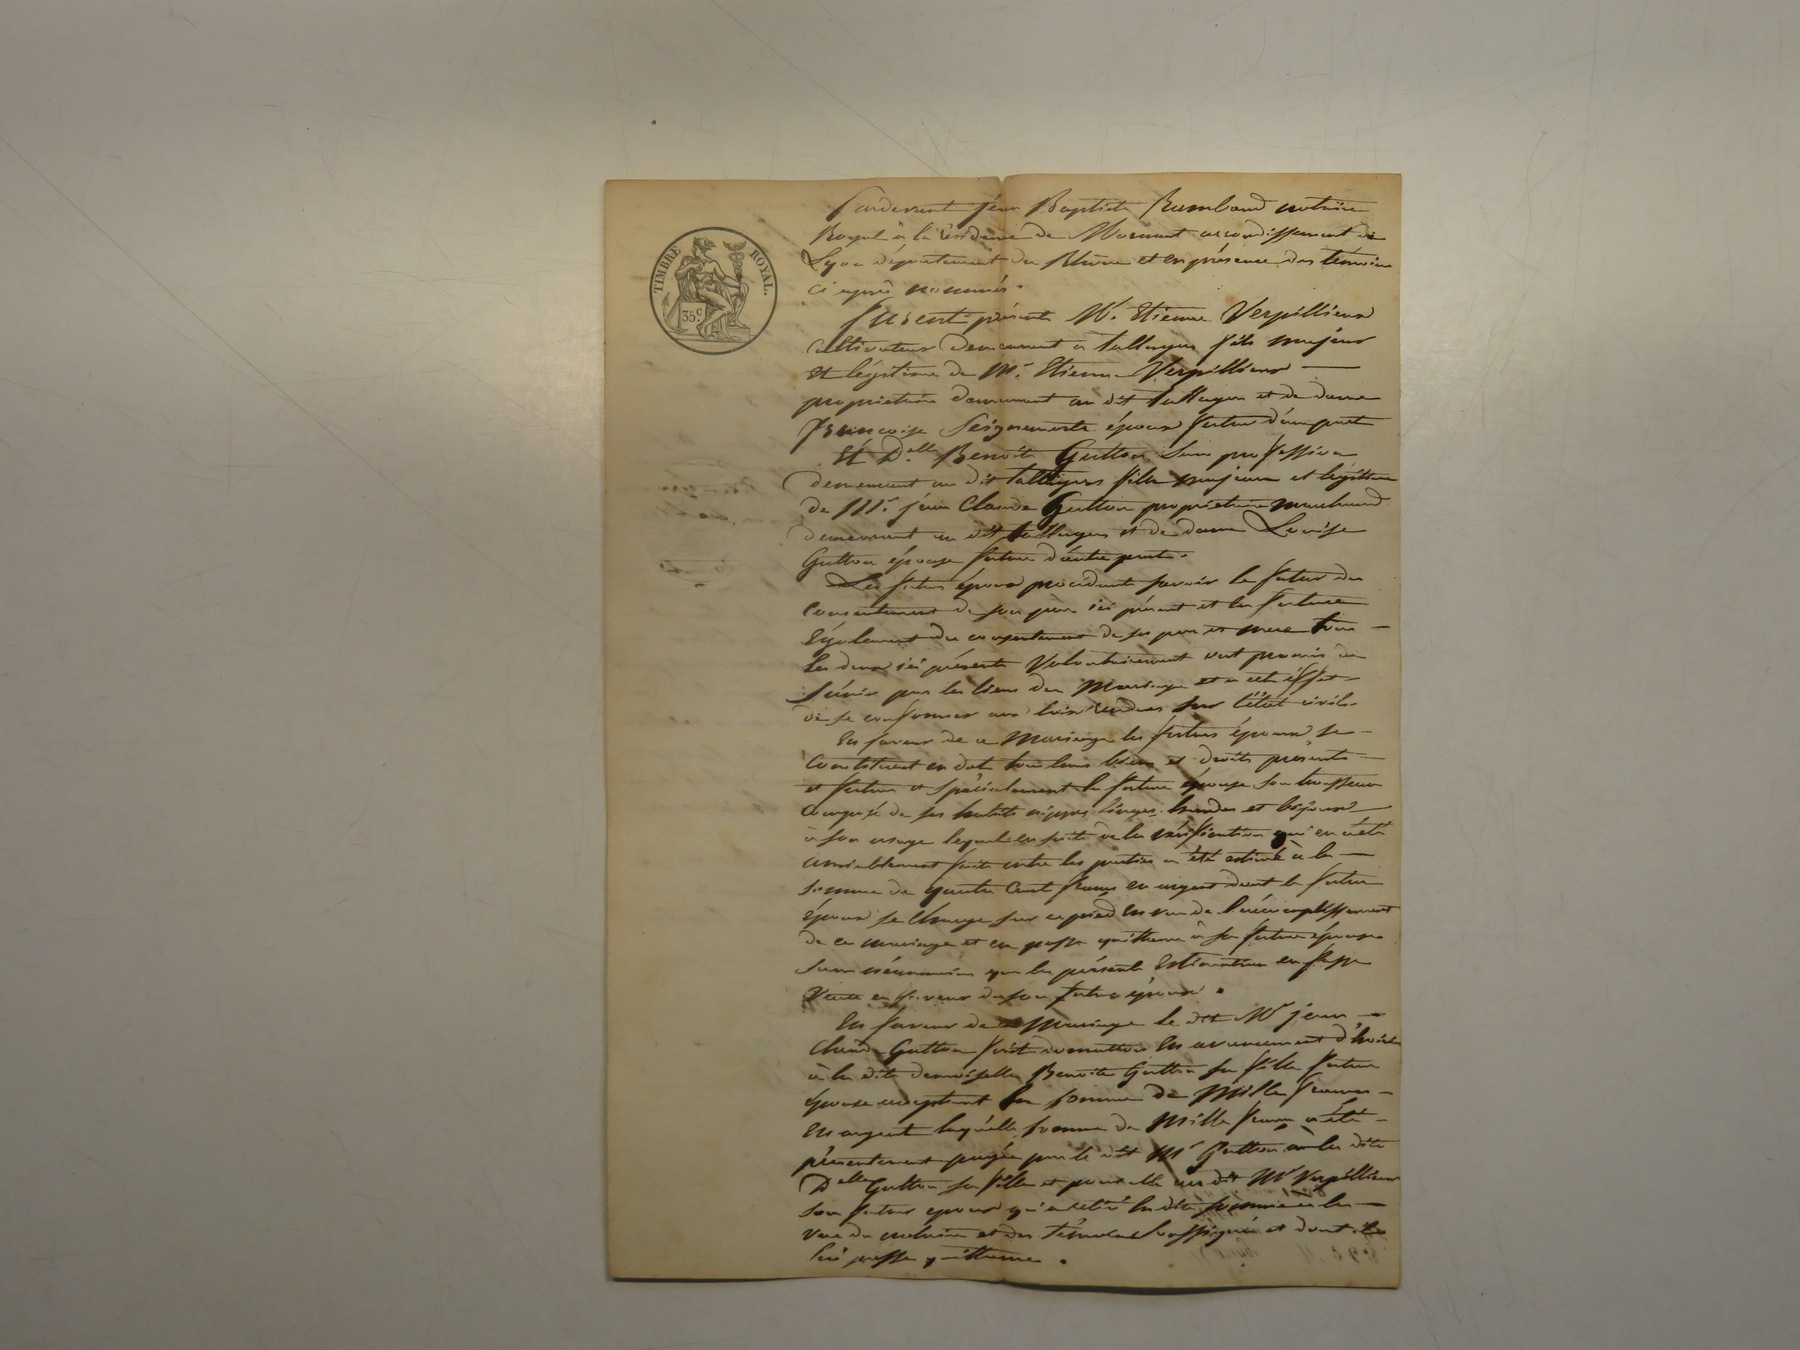 TIMBRE ROYAL.
35 c
Pardevant jean Baptiste Rambaud notaire
Royal à la résidence de Mornant arrondissement de
Lyon département du Rhône et en présence des témoins
ci après nommés.
Furent présents Mr. Etienne Verpillieux
cultivateur demeurant à talluyers fils majeur
et légitime de Mr. Etienne Verpillieux
proprietaire demeurant au dit tallluyers et de dame
Francoise époux futur d'une part
Et Delle Benoîte Gutton Sans profession
demeurant au dit tallluyers fille majeure et légitime
de Mr. jean Claude Gutton propriétaire marchand
demeurant au dit tallluyers et de dame Louise
Gutton épouse future d'autre part.
Les futurs époux procédants savoir le futur du
consentement de son père ici présent et la future
Egalement du consentement de ses pere et mere tous
les deux ici présents Volontairement ont promis de
s'unir par les liens du Mariage et à cet effet
de se conformer aux lois rendues sur l'état civil.
En faveur de ce Mariage les futurs époux se
Constituent en dot tous leurs biens et droits présents
et futurs et spécialement la future épouse son trousseau
Composé de ses habits nippes linges hardes et bijoux
à son usage lequel en suite de la vérification qui en a été
amiablement faite entre les parties a été estimé à la
somme de quatre Cent francs en argent dont le futur
époux se Charge sur ce pied en vue de l'accomplissement
de ce mariage et en passe quittance à sa future épouse
sans néanmoins que la présente Estimation en fasse
Vente en faveur de son futur époux.
En faveur de ce Mariage le dit Mr jean
Claude Gutton fait donation En avancement d'hoirie
à la dite demoiselle Benoite Gutton sa fille future
épouse acceptant la somme de Mille francs
En argent laquelle somme de Mille francs a été
présentement payée par le dit Mr Gutton à la dite
Delle Gutton sa fille et pour elle au dit Mr Verpillieux
son futur epoux qui a retiré la dite somme à la
vue du notaire et des témoins Soussignés et dont ils
lui passe quittance.